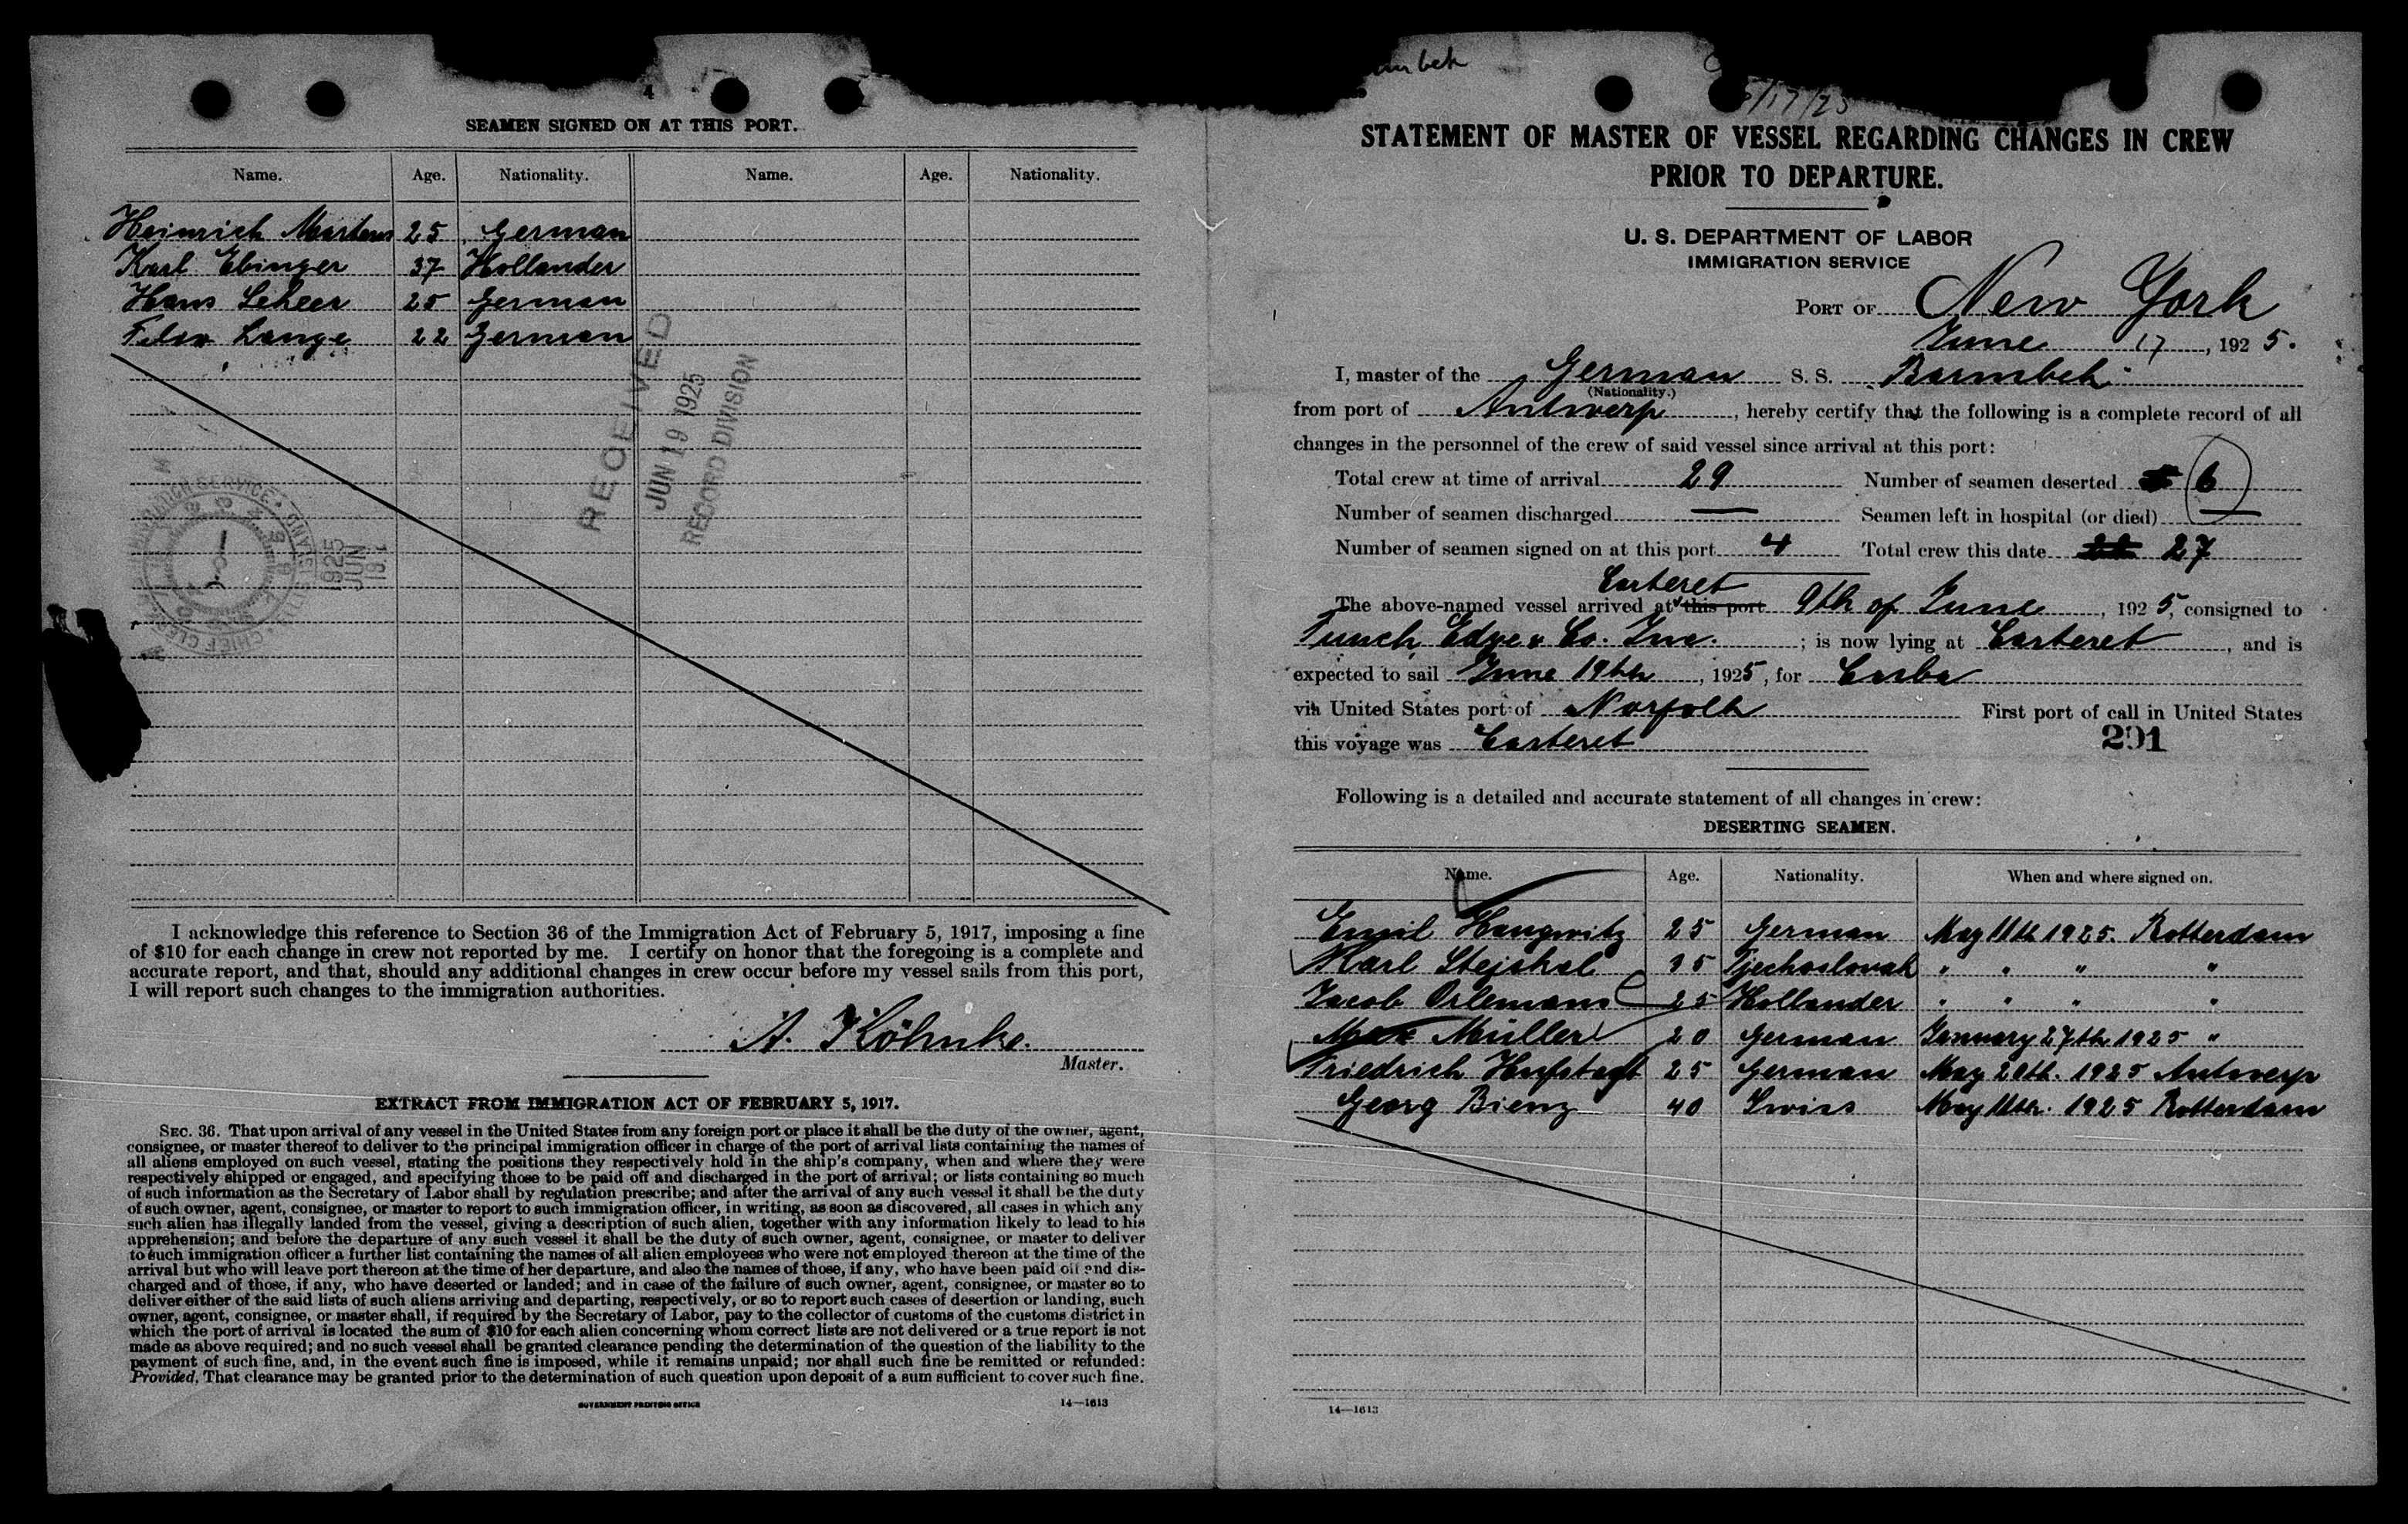 4
SEAMEN SIGNED ON AT THIS PORT.
Name. Age. Nationality. Name. Age. Nationality.
Heinrich Martens 25 German
Karl Ebinger 37 Hollander
Hans Scheer 25 German
Felix Lange 22 German
RECEIVED
JUN 19 1925
RECORD DIVISION
1925
JUN
I acknowledge this reference to Section 36 of the Immigration Act of February 5, 1917, imposing a fine
of $10 for each change in crew not reported by me. I certify on honor that the foregoing is a complete and
accurate report, and that, should any additional changes in crew occur before my vessel sails from this port,
I will report such changes to the immigration authorities.
A. Köhnke.
Master.
EXTRACT FROM IMMIGRATION ACT OF FEBRUARY 5, 1917.
SEC. 36. That upon arrival of any vessel in the United States from any foreign port or place it shall be the duty of the owner, agent,
consignee, or master thereof to deliver to the principal immigration officer in charge of the port of arrival lists containing the names of
all aliens employed on such vessel, stating the positions they respectively hold in the ship's company, when and where they were
respectively shipped or engaged, and specifying those to be paid off and discharged in the port of arrival; or lists containing so much
of such information as the Secretary of Labor shall by regulation prescribe; and after the arrival of any such vessel it shall be the duty
of such owner, agent, consignee, or master to report to such immigration officer, in writing, as soon as discovered, all cases in which any
such alien has illegally landed from the vessel, giving a description of such alien, together with any information likely to lead to his
apprehension; and before the departure of any such vessel it shall be the duty of such owner, agent, consignee, or master to deliver
to such immigration officer a further list containing the names of all alien employees who were not employed thereon at the time of the
arrival but who will leave port thereon at the time of her departure, and also the names of those, if any, who have been paid off and dis-
charged and of those, if any, who have deserted or landed; and in case of the failure of such owner, agent, consignee, or master so to
deliver either of the said lists of such aliens arriving and departing, respectively, or so to report such cases of desertion or landing, such
owner, agent, consignee, or master shall, if required by the Secretary of Labor, pay to the collector of customs of the customs district in
which the port of arrival is located the sum of $10 for each alien concerning whom correct lists are not delivered or a true report is not
made as above required; and no such vessel shall be granted clearance pending the determination of the question of the liability to the
payment of such fine, and, in the event such fine is imposed, while it remains unpaid; nor shall such fine be remitted or refunded:
Provided, That clearance may be granted prior to the determination of such question upon deposit of a sum sufficient to cover such fine.
GOVERNMENT PRINTING OFFICE 14—1613
STATEMENT OF MASTER OF VESSEL REGARDING CHANGES IN CREW
PRIOR TO DEPARTURE.
U. S. DEPARTMENT OF LABOR
IMMIGRATION SERVICE
PORT OF New York
June 17, 1925.
I, master of the German S. S. Barmbek
(Nationality.)
from port of Antwerp, hereby certify that the following is a complete record of all
changes in the personnel of the crew of said vessel since arrival at this port:
Total crew at time of arrival 29 Number of seamen deserted 6
Number of seamen discharged — Seamen left in hospital (or died) —
Number of seamen signed on at this port 4 Total crew this date 27
Carteret
The above-named vessel arrived at this port 9th of June, 1925, consigned to
Funch Edye & Co. Inc.; is now lying at Carteret, and is
expected to sail June 19th, 1925, for Cuba
via United States port of Norfolk First port of call in United States
this voyage was Carteret
291
Following is a detailed and accurate statement of all changes in crew:
DESERTING SEAMEN.
Name. Age. Nationality. When and where signed on.
Emil Haugwitz 25 German May 11th 1925. Rotterdam
Karl Stejskal 35 Tjechoslovak " " " "
Jacob Orlemans 25 Hollander " " " "
Max Müller 20 German January 27th 1925 "
Friedrich Hufstadt 25 German May 20th. 1925 Antwerp
Georg Bienz 40 Swiss May 11th. 1925 Rotterdam
14—1613